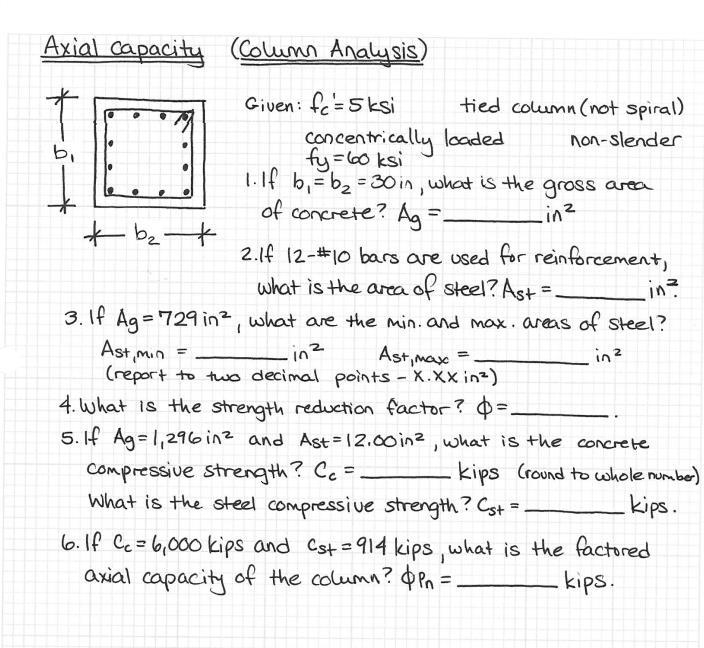 Axial Capacity (Column Analysis)
Given: fc'=5 ksi tied column (not spiral)
concentrically loaded non-slender
fy=60 ksi
b₁
b₂
1. If b₁=b₂=30in, what is the gross area
of concrete? Ag =______ in²
2. If 12-#10 bars are used for reinforcement,
what is the area of steel? Ast =______ in².
3. If Ag=729in², what are the min. and max. areas of steel?
Ast,min = ______ in² Ast,max = ______ in²
(report to two decimal points - X.XX in²)
4. What is the strength reduction factor? ϕ=______.
5. If Ag=1,296in² and Ast=12.00in², what is the concrete
compressive strength? Cc = ______ kips (round to whole number)
What is the steel compressive strength? Cst = ______ kips.
6. If Cc=6,000 kips and Cst=914 kips, what is the factored
axial capacity of the column? ϕPn = ______ kips.